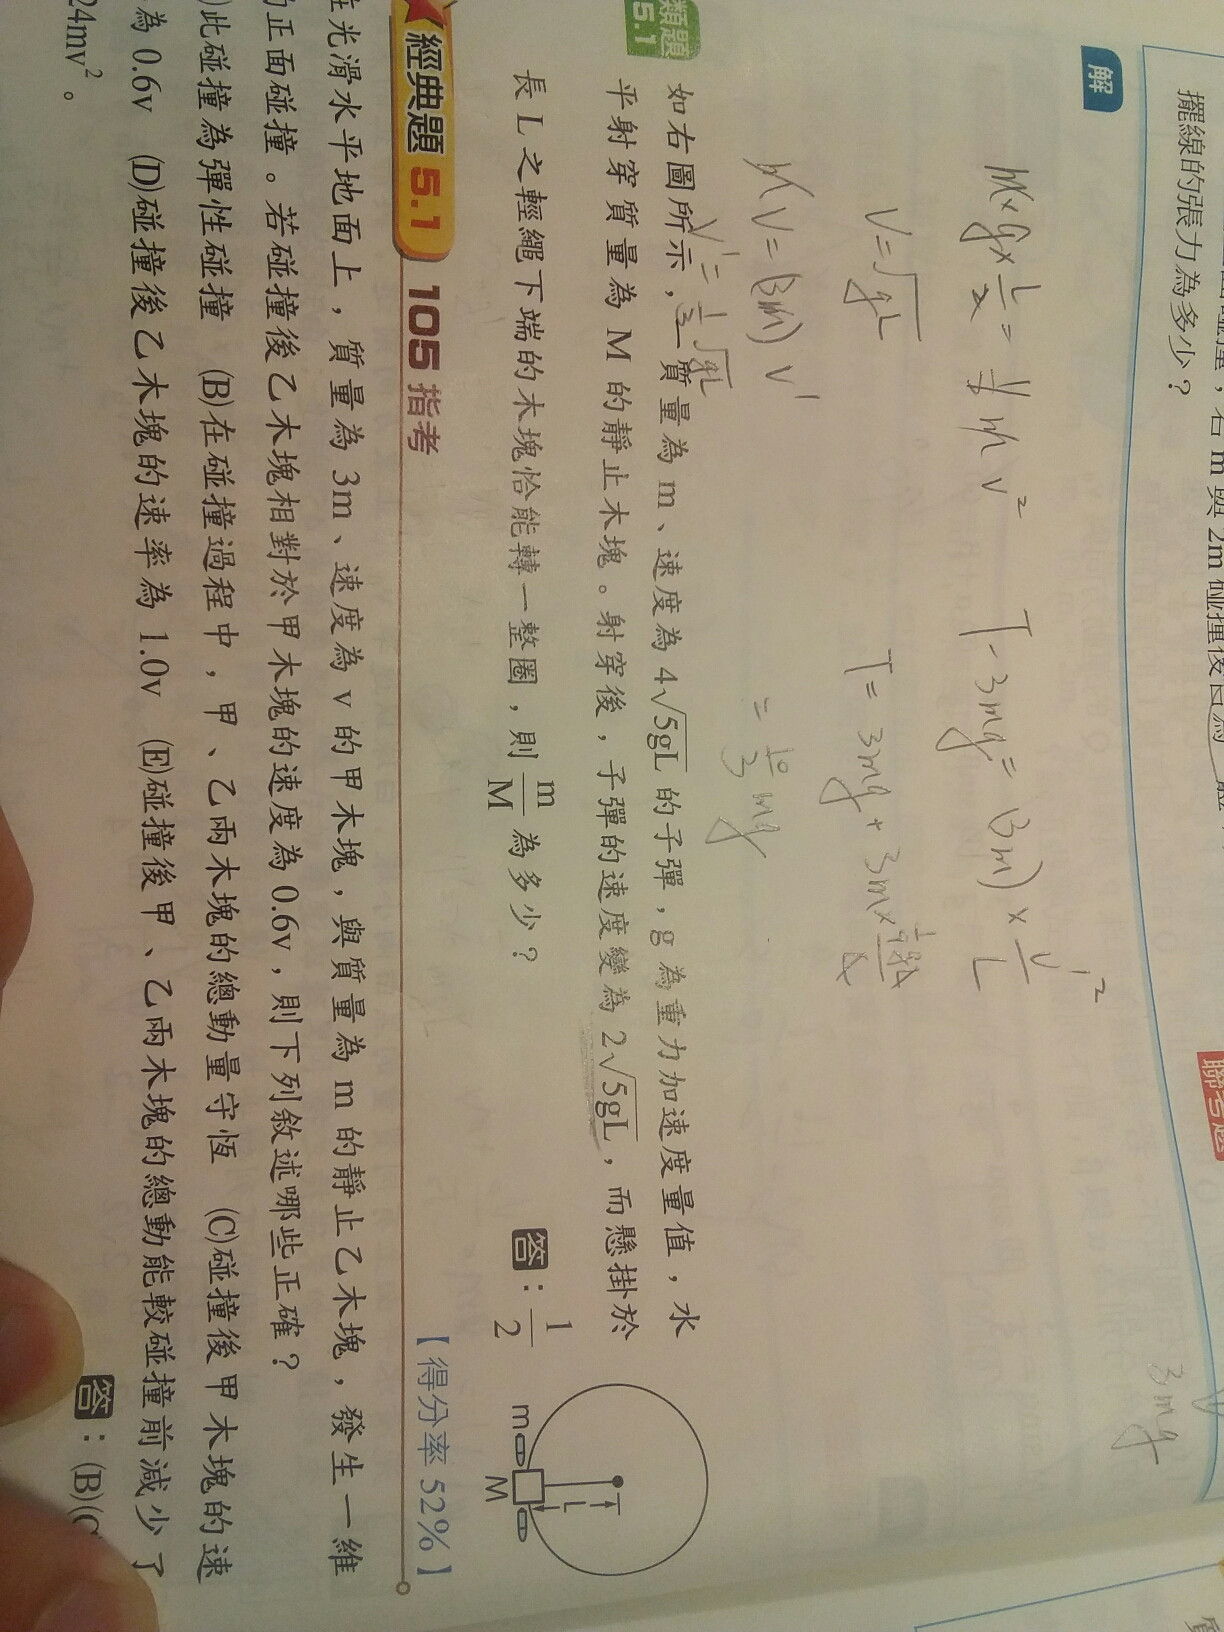 擺線的張力為多少？
聯考題
3mg
解
mg × L/2 = 1/2 mv²
T - 3mg = (3m) × v'²/L
v = √gL
T = 3mg + 3m ×
= 10/3 mg
mv = (3m) v'
v' = 1/3 √gL
類題 5.1
如右圖所示，一質量為 m、速度為 4√5gL 的子彈，g 為重力加速度量值，水
平射穿質量為 M 的靜止木塊。射穿後，子彈的速度變為 2√5gL，而懸掛於
長 L 之輕繩下端的木塊恰能轉一整圈，則 m/M 為多少？
答：1/2
T
L
m
M
經典題 5.1 105 指考
【得分率 52%】
光滑水平地面上，質量為 3m、速度為 v 的甲木塊，與質量為 m 的靜止乙木塊，發生一維
正面碰撞。若碰撞後乙木塊相對於甲木塊的速度為 0.6v，則下列敘述哪些正確？
此碰撞為彈性碰撞 (B)在碰撞過程中，甲、乙兩木塊的總動量守恆 (C)碰撞後甲木塊的速
為 0.6v (D)碰撞後乙木塊的速率為 1.0v (E)碰撞後甲、乙兩木塊的總動能較碰撞前減少了
24mv²。
答：(B)(C